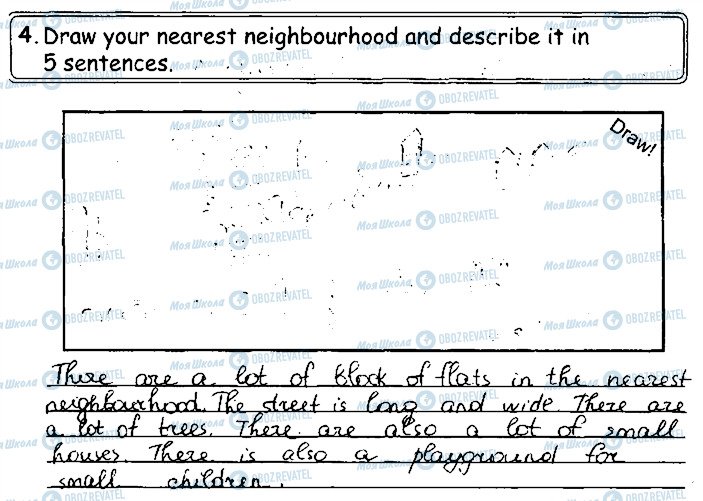 4. Draw your nearest neighbourhood and describe it in
5 sentences.
Draw!
There are a lot of block of flats in the nearest
neighbourhood. The street is long and wide. There are
a lot of trees. There are also a lot of small
houses. There is also a playground for
small children.
Моя Школа OBOZREVATEL